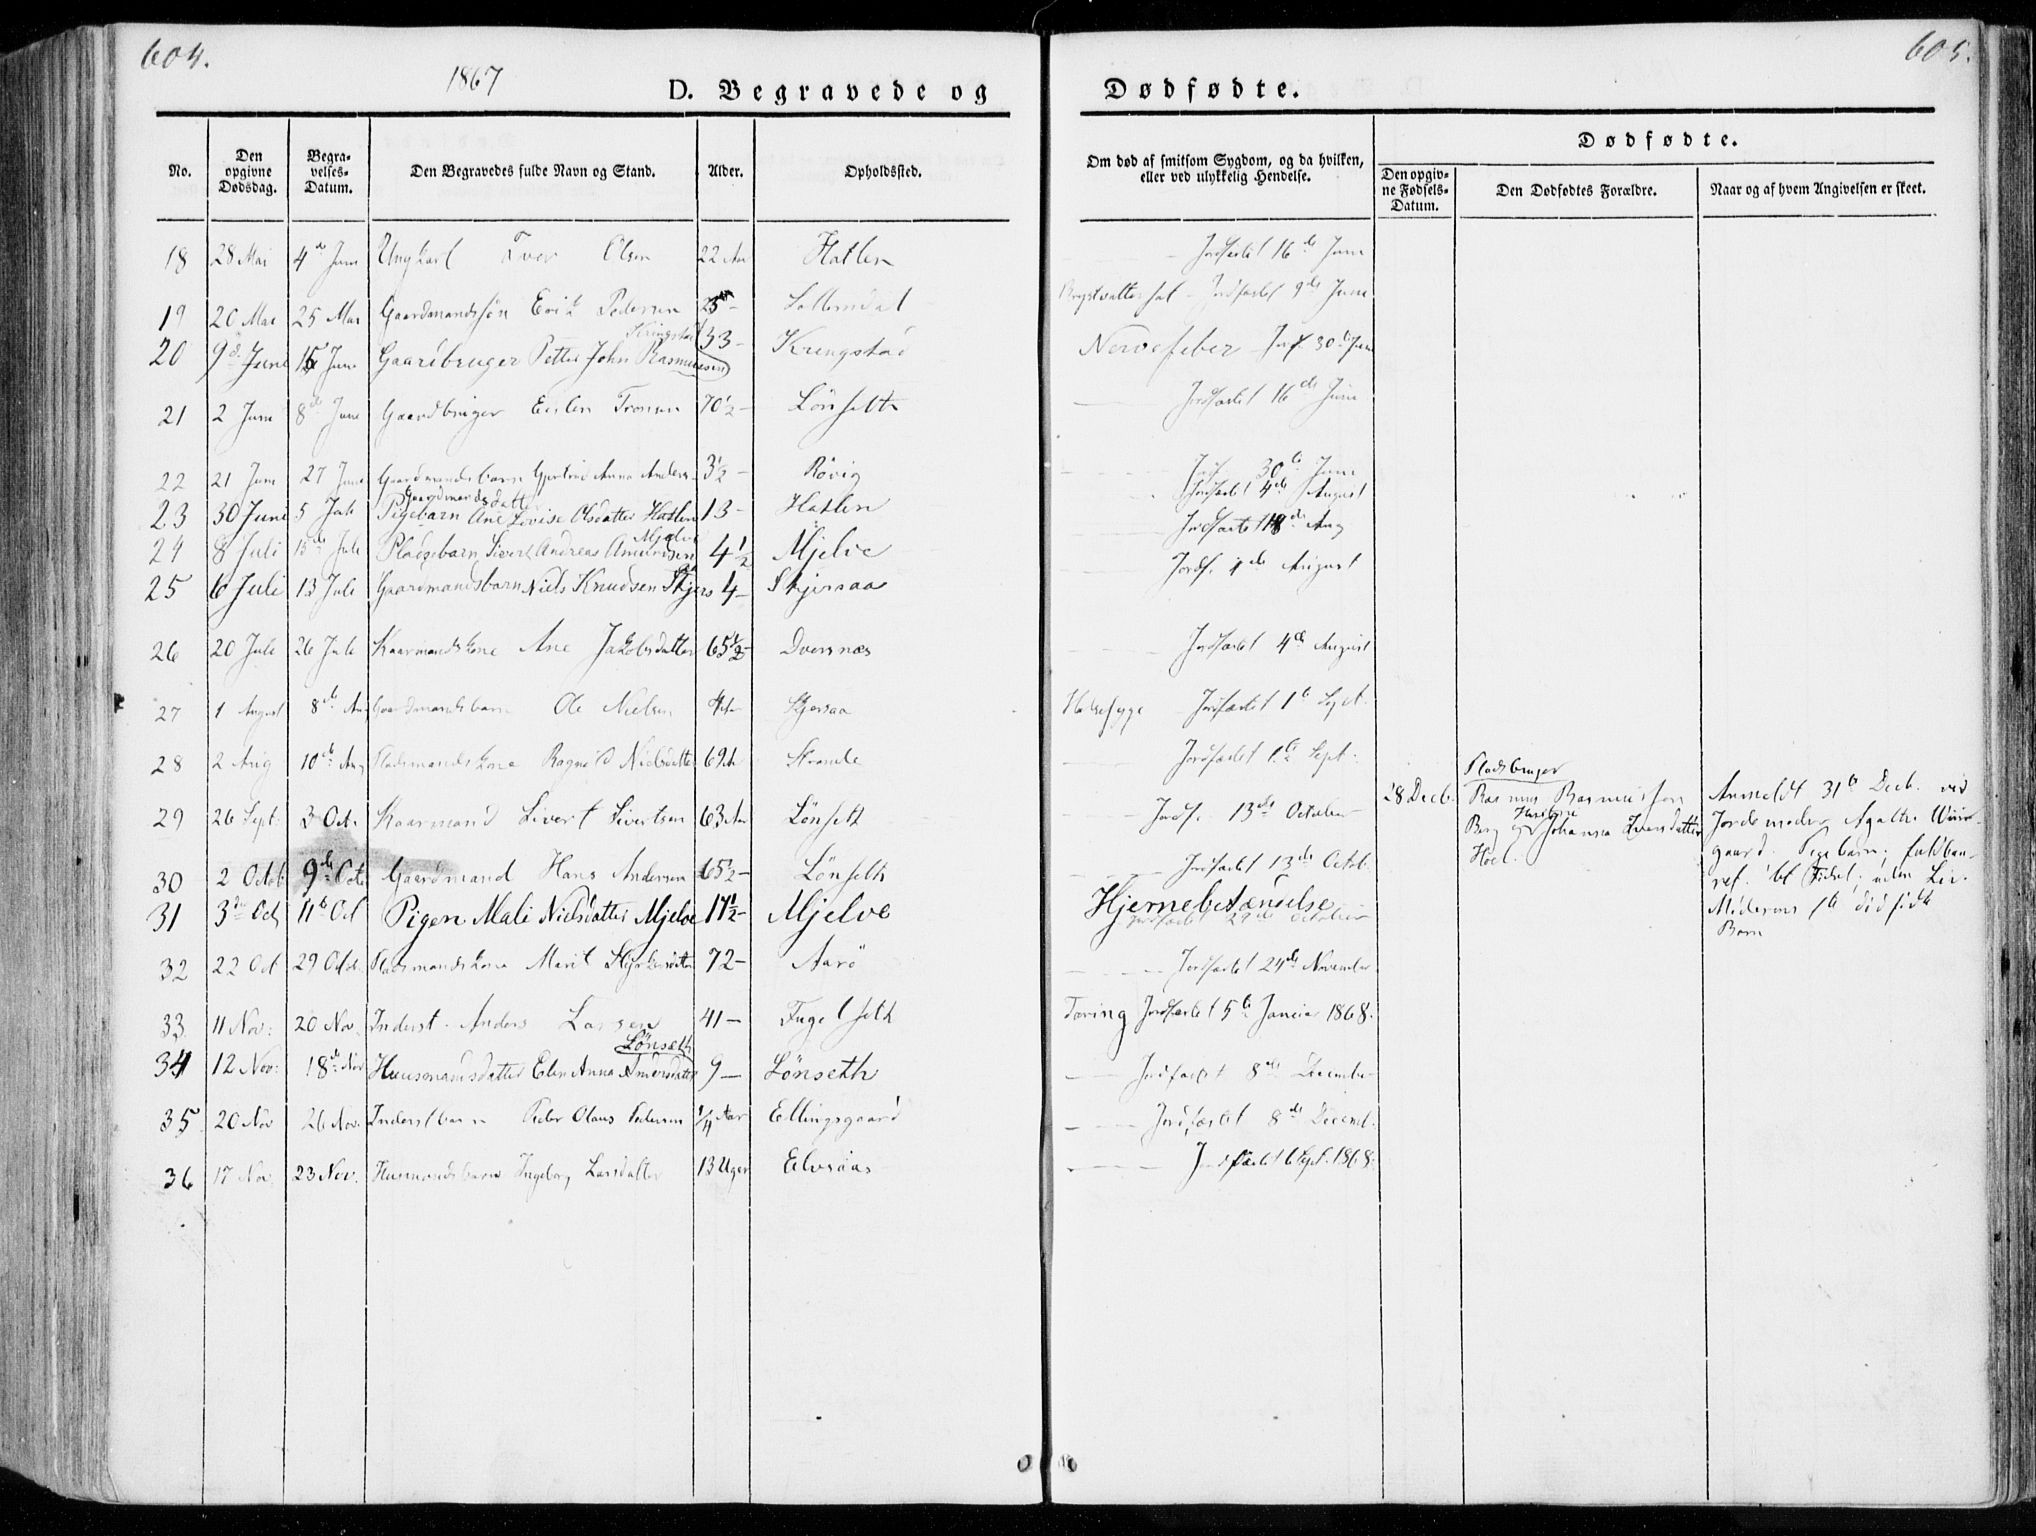 604.
1867
D. Begravede og
Dødfødte.
605.
No.
Den opgivne Dødsdag.
Begravelses-Datum.
Den Begravedes fulde Navn og Stand.
Alder.
Opholdssted.
Om død af smitsom Sygdom, og da hvilken, eller ved ulykkelig Hendelse.
Dødfødte.
Den opgivne Fødsels-Datum.
Den Dødfødtes Forældre.
Naar og af hvem Angivelsen er skeet.
18 28 Mai 4de Juni Ungkarl Iver Olsen 22 Aar Hatlen Jordfæstet 16de Juni
19 20 Mai 25 Mai Gaardmandssøn Erik Pedersen 25 - Jordfæstet 9de Juni
20 9de Juni 15 Juni Gaardbruger Petter John Rasmussen Kringstad 33 - Kringstad Nervefeber Jrf. 30te Juni
21 2 Juni 8de Juni Gaardbruger Tronsen 70½ - Lønseth Jordfæstet 16de Juni
22 21 Juni 27 Juni Gaardmandsbarn Gjertrud Anna Anders- 3½ - Røvig Jrdf 30te Juni
23 30 Juni 5 Juli Gaardmandsdatter Pigebarn Ane Lovise Olsdatter Hatlen 13 - Hatlen Jordfæstet 4de August
24 8 Juli 13de Juli Pladsebarn Sivert Andreas Amundsen Mjelve 4½ Mjelve Jordfæstet 18de Aug
25 6 Juli 13 Juli Gaardmandsbarn Niels Knudsen Skjersaa 4 - Skjersaa Jordf. 4de August
26 20 Juli 26 Juli Kaarmandskone Ane Jakobsdatter 65½ - Dversnæs Jordfæstet 4de August
27 1 August 8de Aug Gaardmandsbarn Ole Nielsen Skjersaa Halsesyge Jordfæstet 1te Sept.
28 2 Aug 10de Aug Pladsmandskone Ragnild Nielsdatter 69 Strande Jordfæstet 1te Sept.
29 26 Sept. 3 Oct. Kaarmand Sivert Sivertsen 63 Aar Lønseth Jordf. 13de October
28 Decb. Pladsbruger Rasmus Rasmussen Berg og Hustru Johanna Iversdatter Hoel.
Anmeldt 31te Decb. ved Jordemoder Agathe gaard. Pigebarn; fuldbaa- ret. Fødsel; uden Liv. Moderens 1te dødfødte Barn
30 2 Octob. 9de Oct. Gaardmand Hans Andersen 65½ - Lønseth Jordfæstet 13de Octob.
31 3de Oct 11te Oct Pigen Mali Nielsdatter Mjelve 17½ - Mjelve Hjernebetændelse Jordfæstet October
32 22 Oct 29 Octob. Pladsmandskone Marit 72 - Aarø Jordfæstet 24de November
33 11 Nov: 20 Nov. Inderst Anders Larsen 41 - Fugelseth Tæring Jordfæstet 5te Januar 1868.
34 12 Nov: 18de Nov Huusmandsdatter Elen Anna Andersdatter Lønseth 9 - Lønseth Jordfæstet 8de December
35 20 Nov 26 Nov. Inderstbarn Peder Olaus Pedersen ¼ Aar Ellingsgaard Jordfæstet 8de Decemb.
36 17 Nov. 23 Nov. Husmandsbarn Ingeborg Larsdatter 13 Uger Elvsaas Jordfæstet 6 Sept. 1868.